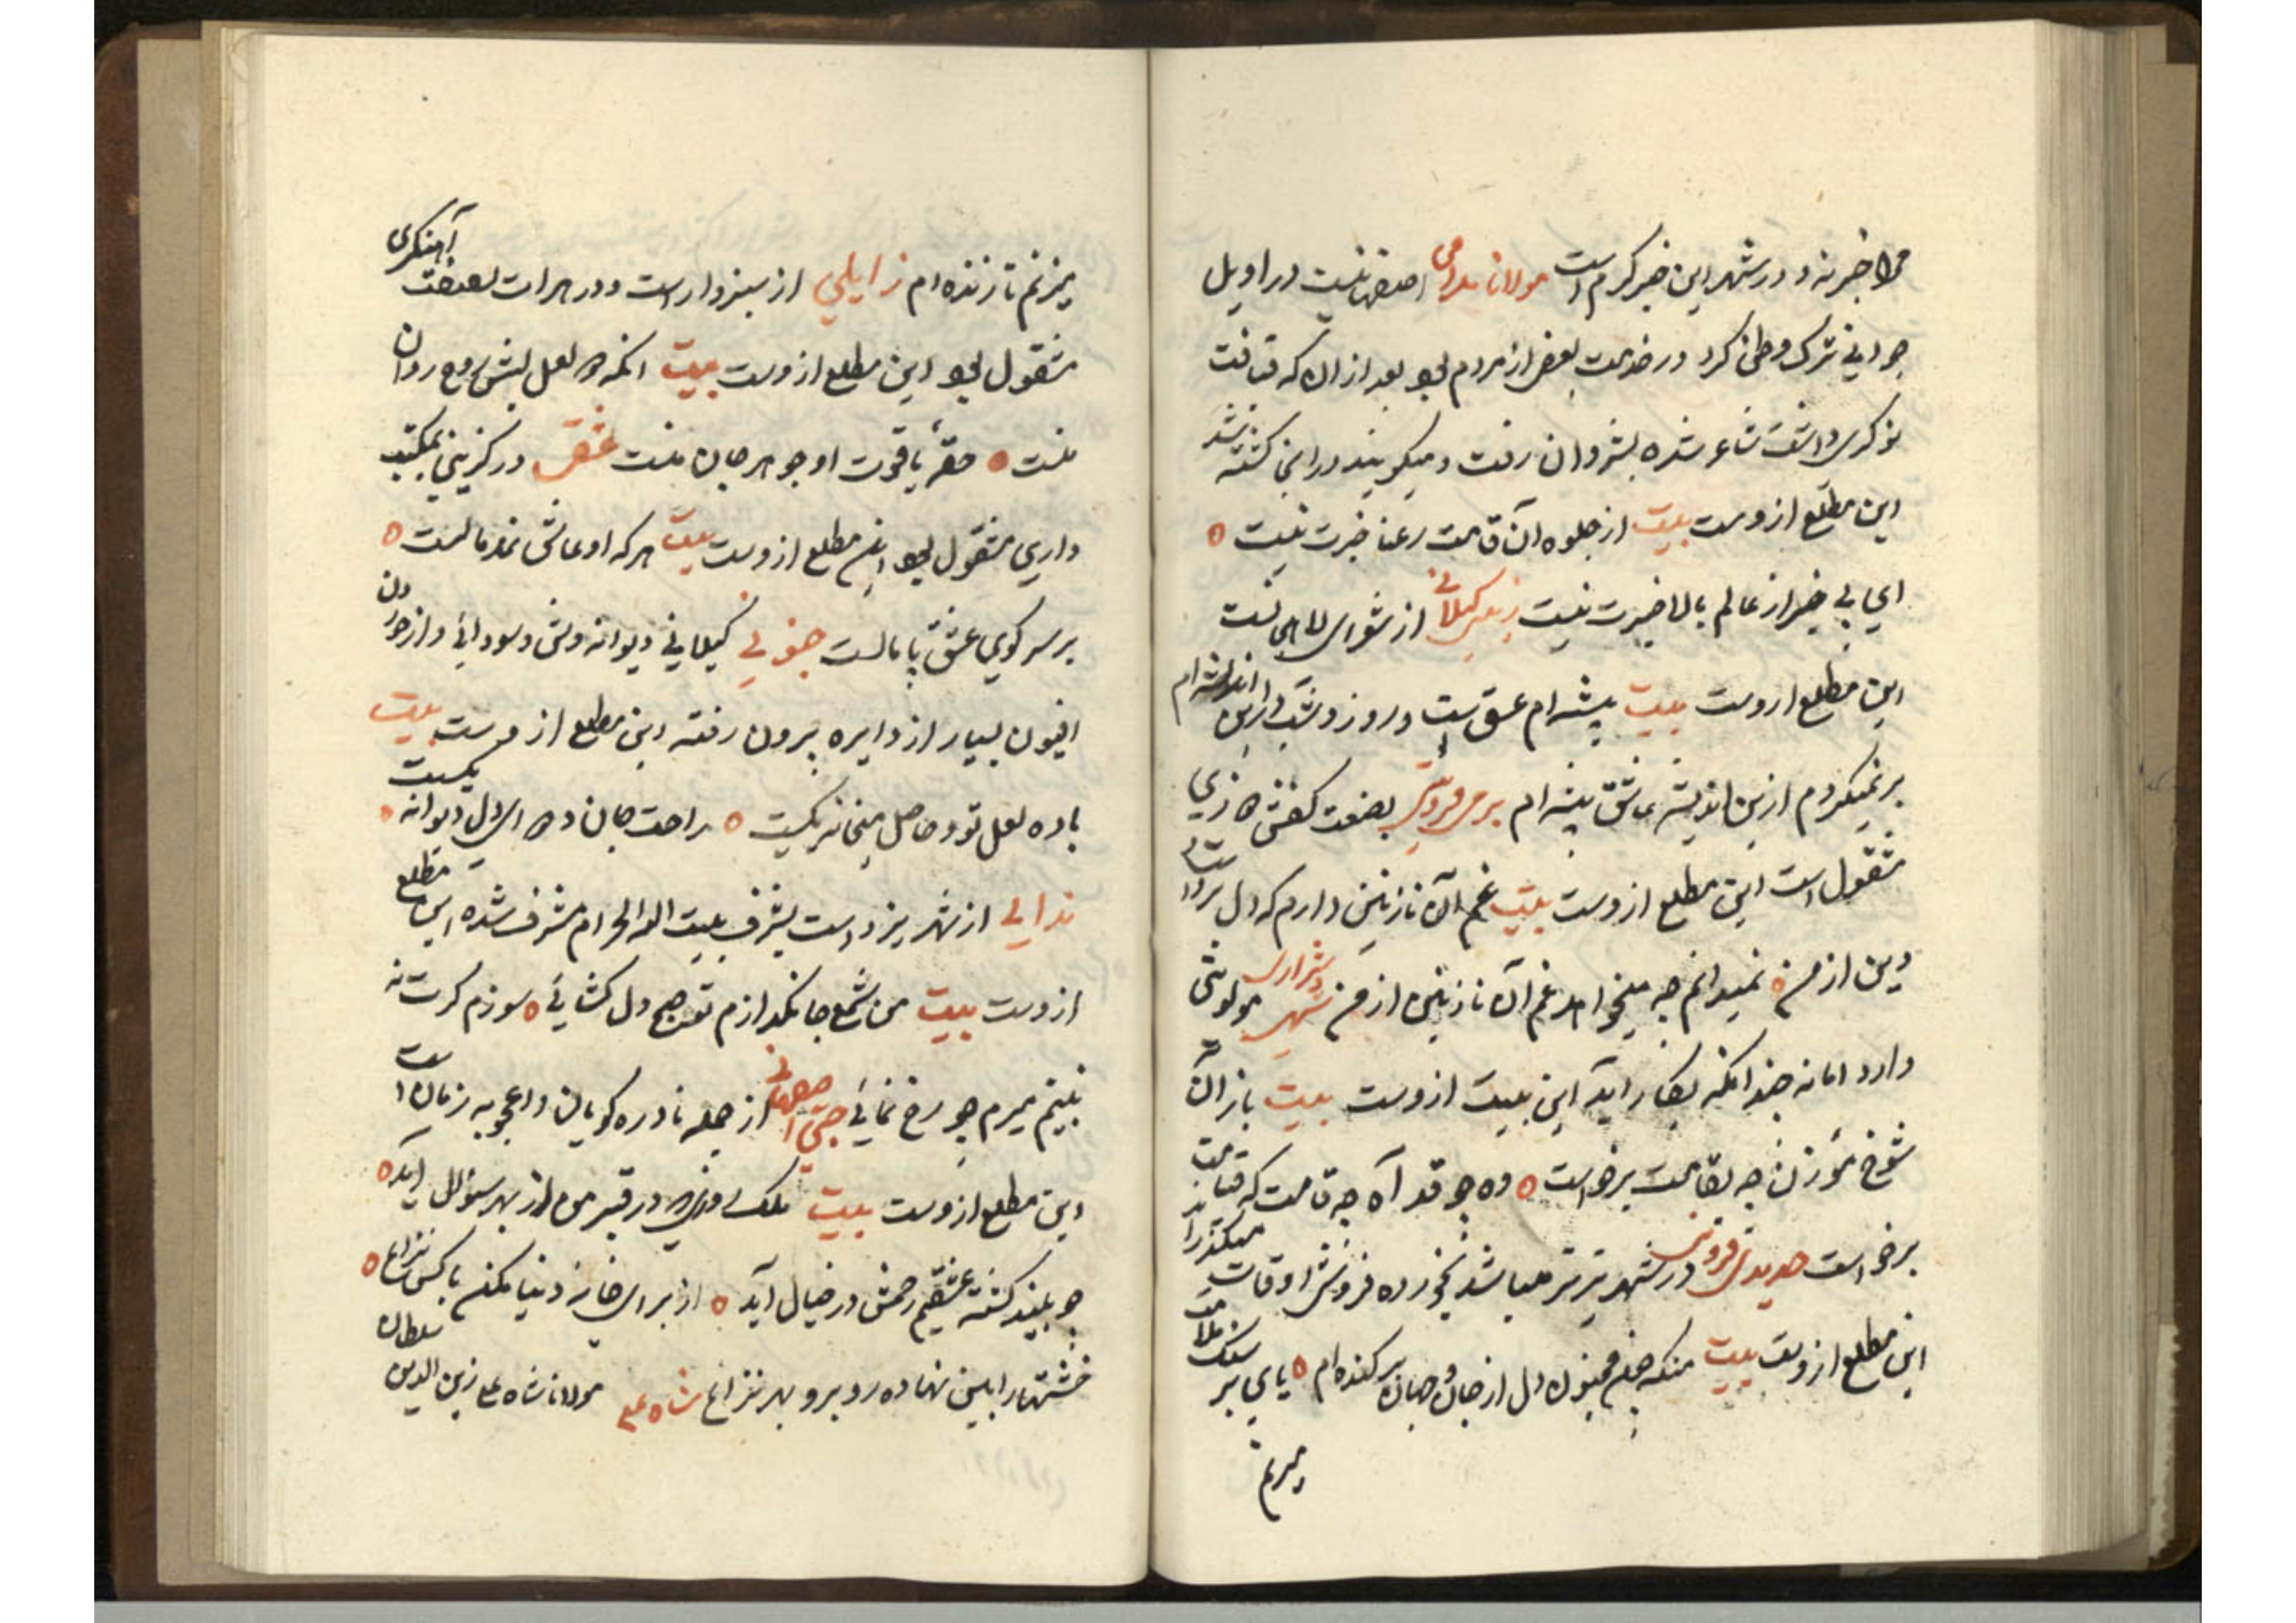 مرا خبر نه و در شهر این خبر گرم است مولانا اصفهانیست در اویل
جوانی ترک وطن کرد در خدمت بعض از مردم بود بعد از ان که قیافت
نوکری داشت شاعر شده بشروان رفت و میگویند در انجا کشته شد
این مطلع ازوست بیت از جلوه آن قامت رعنا خبرت نیست ٥
ای بی خبر از عالم بالا خبرت نیست گیلانی از شعرای لاهیجانست
این مطلع ازوست بیت پیشه ام عشق است و روز و شب در این اندیشه ام
بر نمیکردم ازین اندیشه عاشق پیشه ام بصنعت کفش دوزی
مشغول است این مطلع ازوست بیت غم آن نازنین دارم که دل برد و
دین از من ٥ نمیدانم چه میخواهد غم آن نازنین از من مولویتی
دارد اما نه چندانکه بکار آید این بیت ازوست بیت باز آن
شوخ مؤذن چه بقامت برخواست ٥ وه چو قد آه چه قامت که قیامت
برخواست در شهر تبریز میباشد بخورده فروشی اوقات میگذراند
این مطلع ازوست بیت منکه همچو مجنون دل از جان و جهان بر کنده ام ٥ پای بر سنک ملامت
میزنم
میزنم تا زنده ام زایلی از سبزوار است و در هرات بصنعت آهنکری
مشغول بود این مطلع ازوست بیت انکه لعل لبش روح روان
منست ٥ حقه یاقوت او جوهر جان منست در کزینی بمکتب
داری مشغول بود این مطلع ازوست بیت هر که او عاشق نمد مالست ٥
بر سر کوی عشق پامالست جنونی گیلانی دیوانه وش و سودائی و از خوردن
افیون بسیار از دایره بیرون رفته این مطلع ازوست بیت
باده لعل تو و حاصل میخانه یکیست ٥ راحت جان دل دیوانه یکیست ٥
ندایی از شهر یزد است بشرف بیت الله الحرام مشرف شده این مطلع
ازوست بیت من شمع جانکدازم تو صبح دل کشائی ٥ سوزم کرت نه
بینم میرم چو رخ نمائی اصفهانی از جمله نادره کویان و اعجوبه زمان است
این مطلع ازوست بیت ملک در قبر من از بهر سؤال آید ٥
چو بیند کشته عشقیم رحمش در خیال آید ٥ از برای خانه دنیا مکن با کس نزاع ٥
خشتها را بین نهاده رو برو بهر نزاع شاه علی مولانا شاه علی زین الدین سلطان